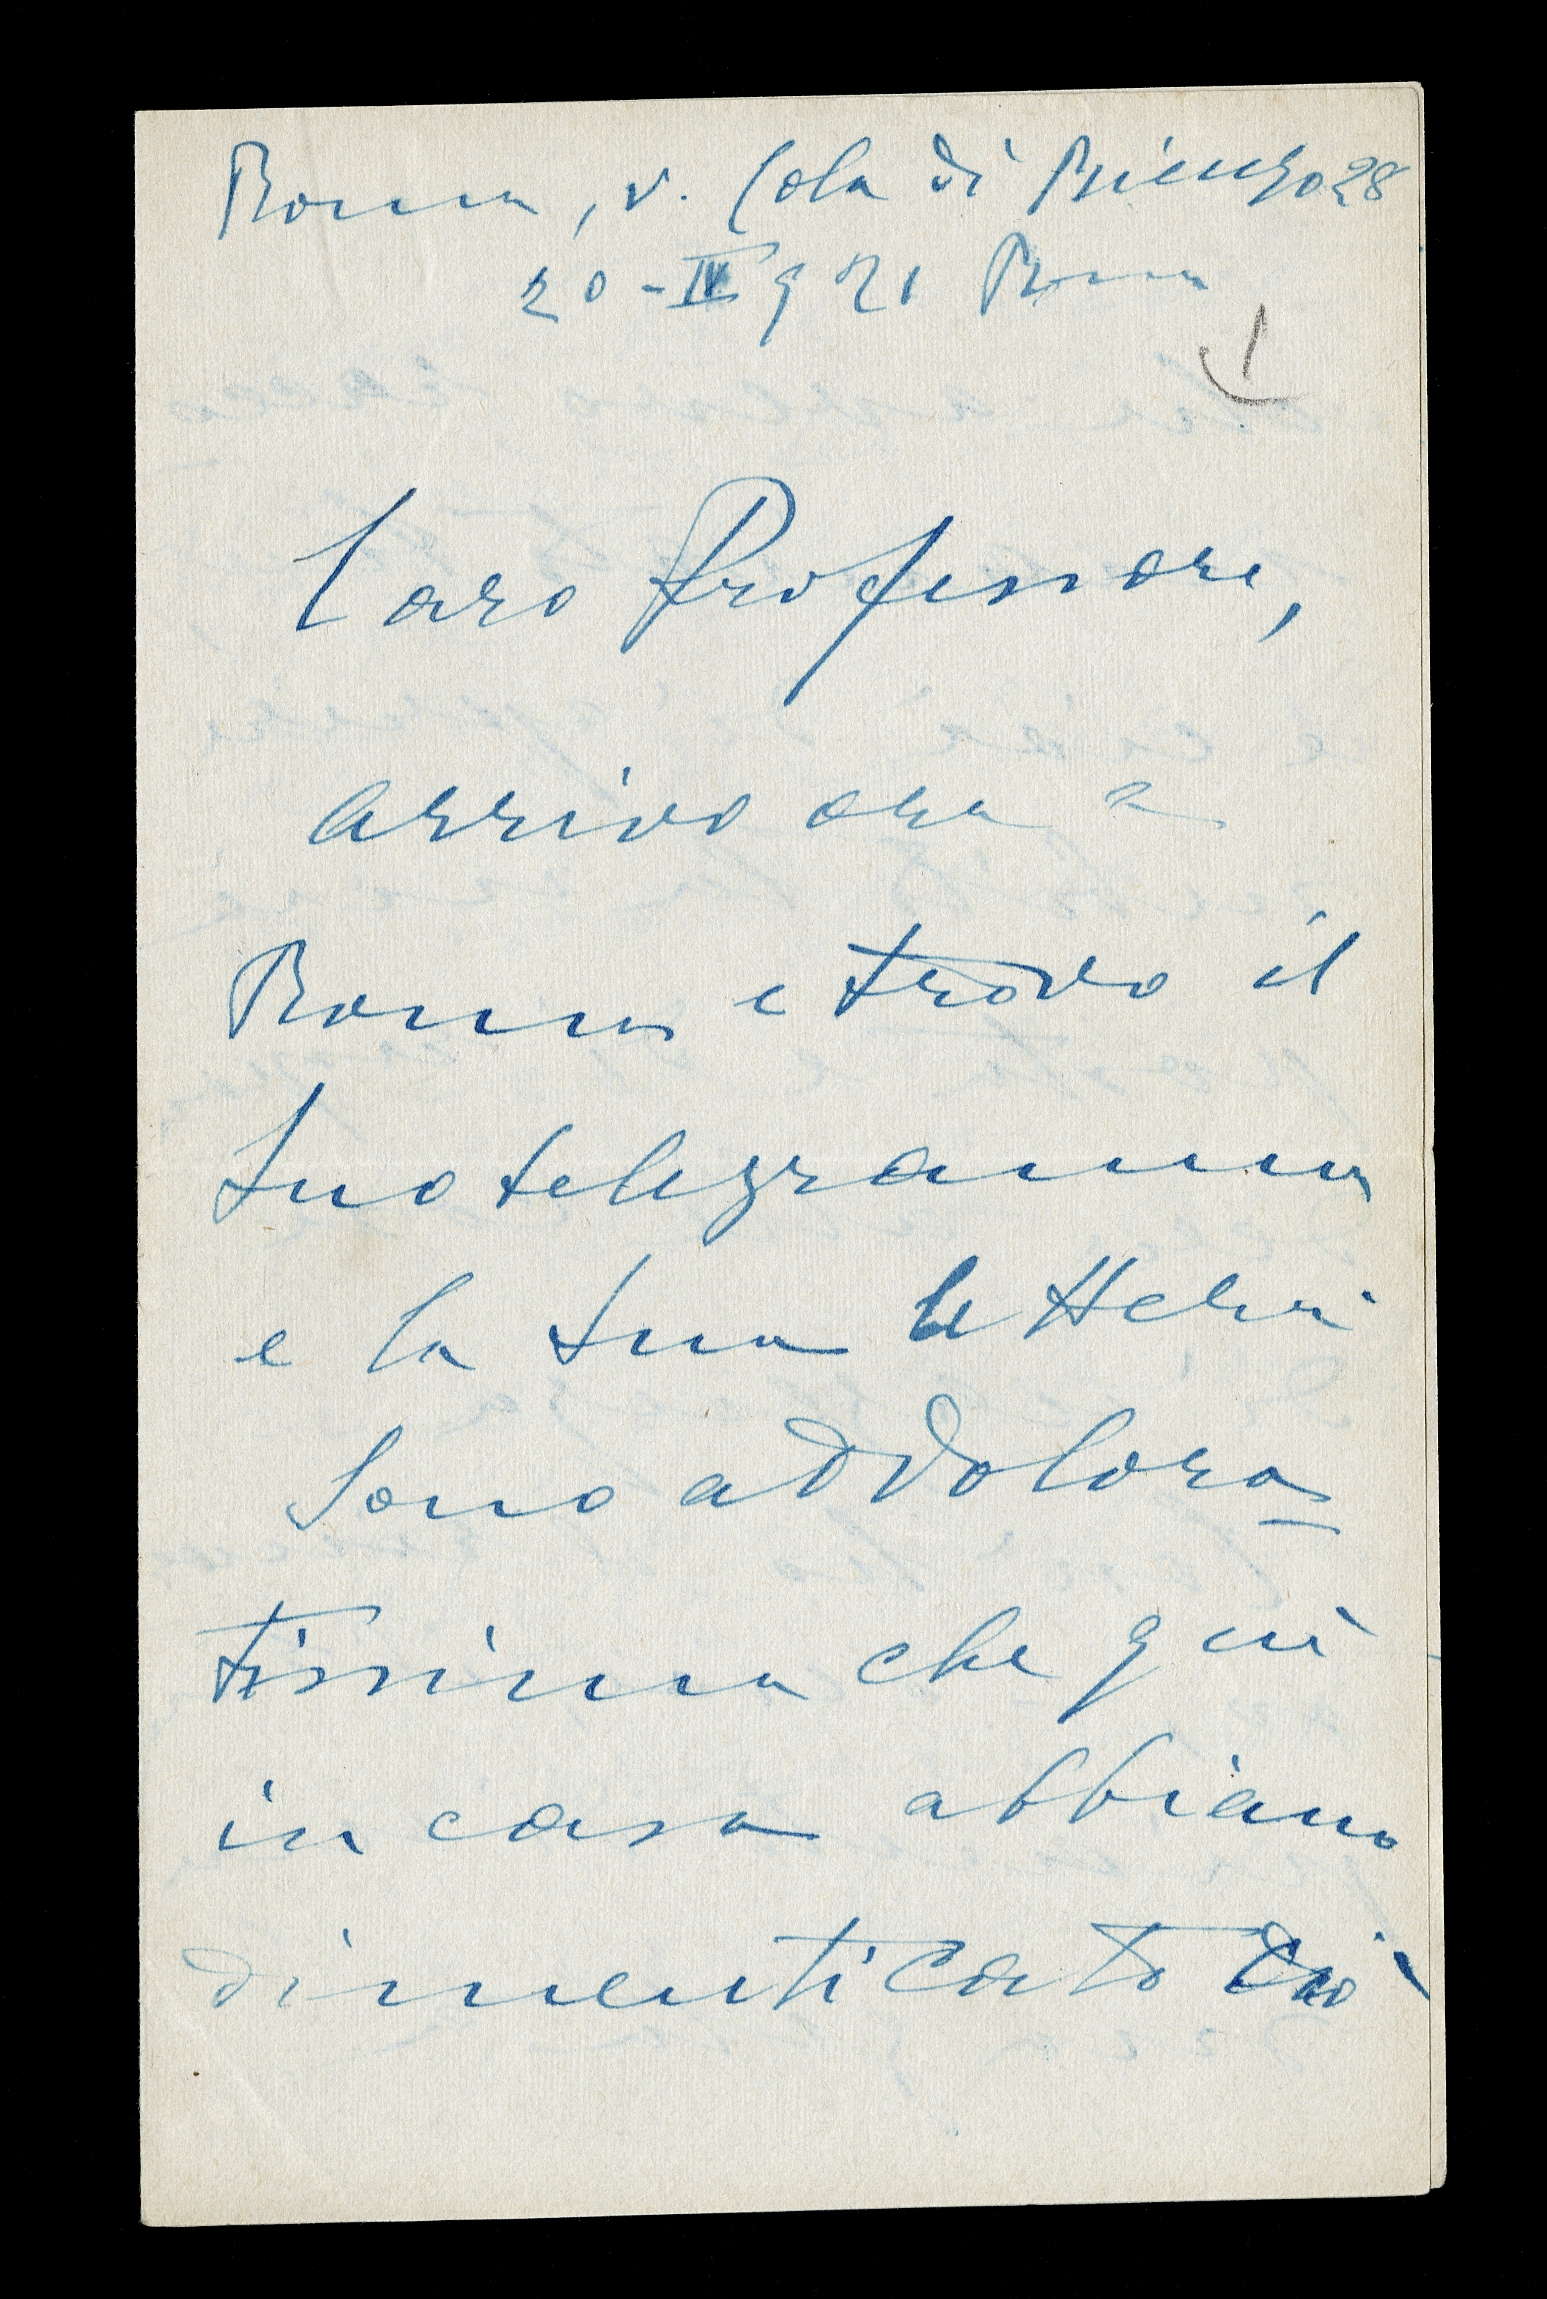 Roma, v. Cola di Rienzo 28
20-IV 921 Roma
1
Caro Professore,
arrivo ora a
Roma e trovo il
Suo telegramma
e la Sua lettera
Sono addolora-
tissima che qui
in casa abbiano
dimenticato di